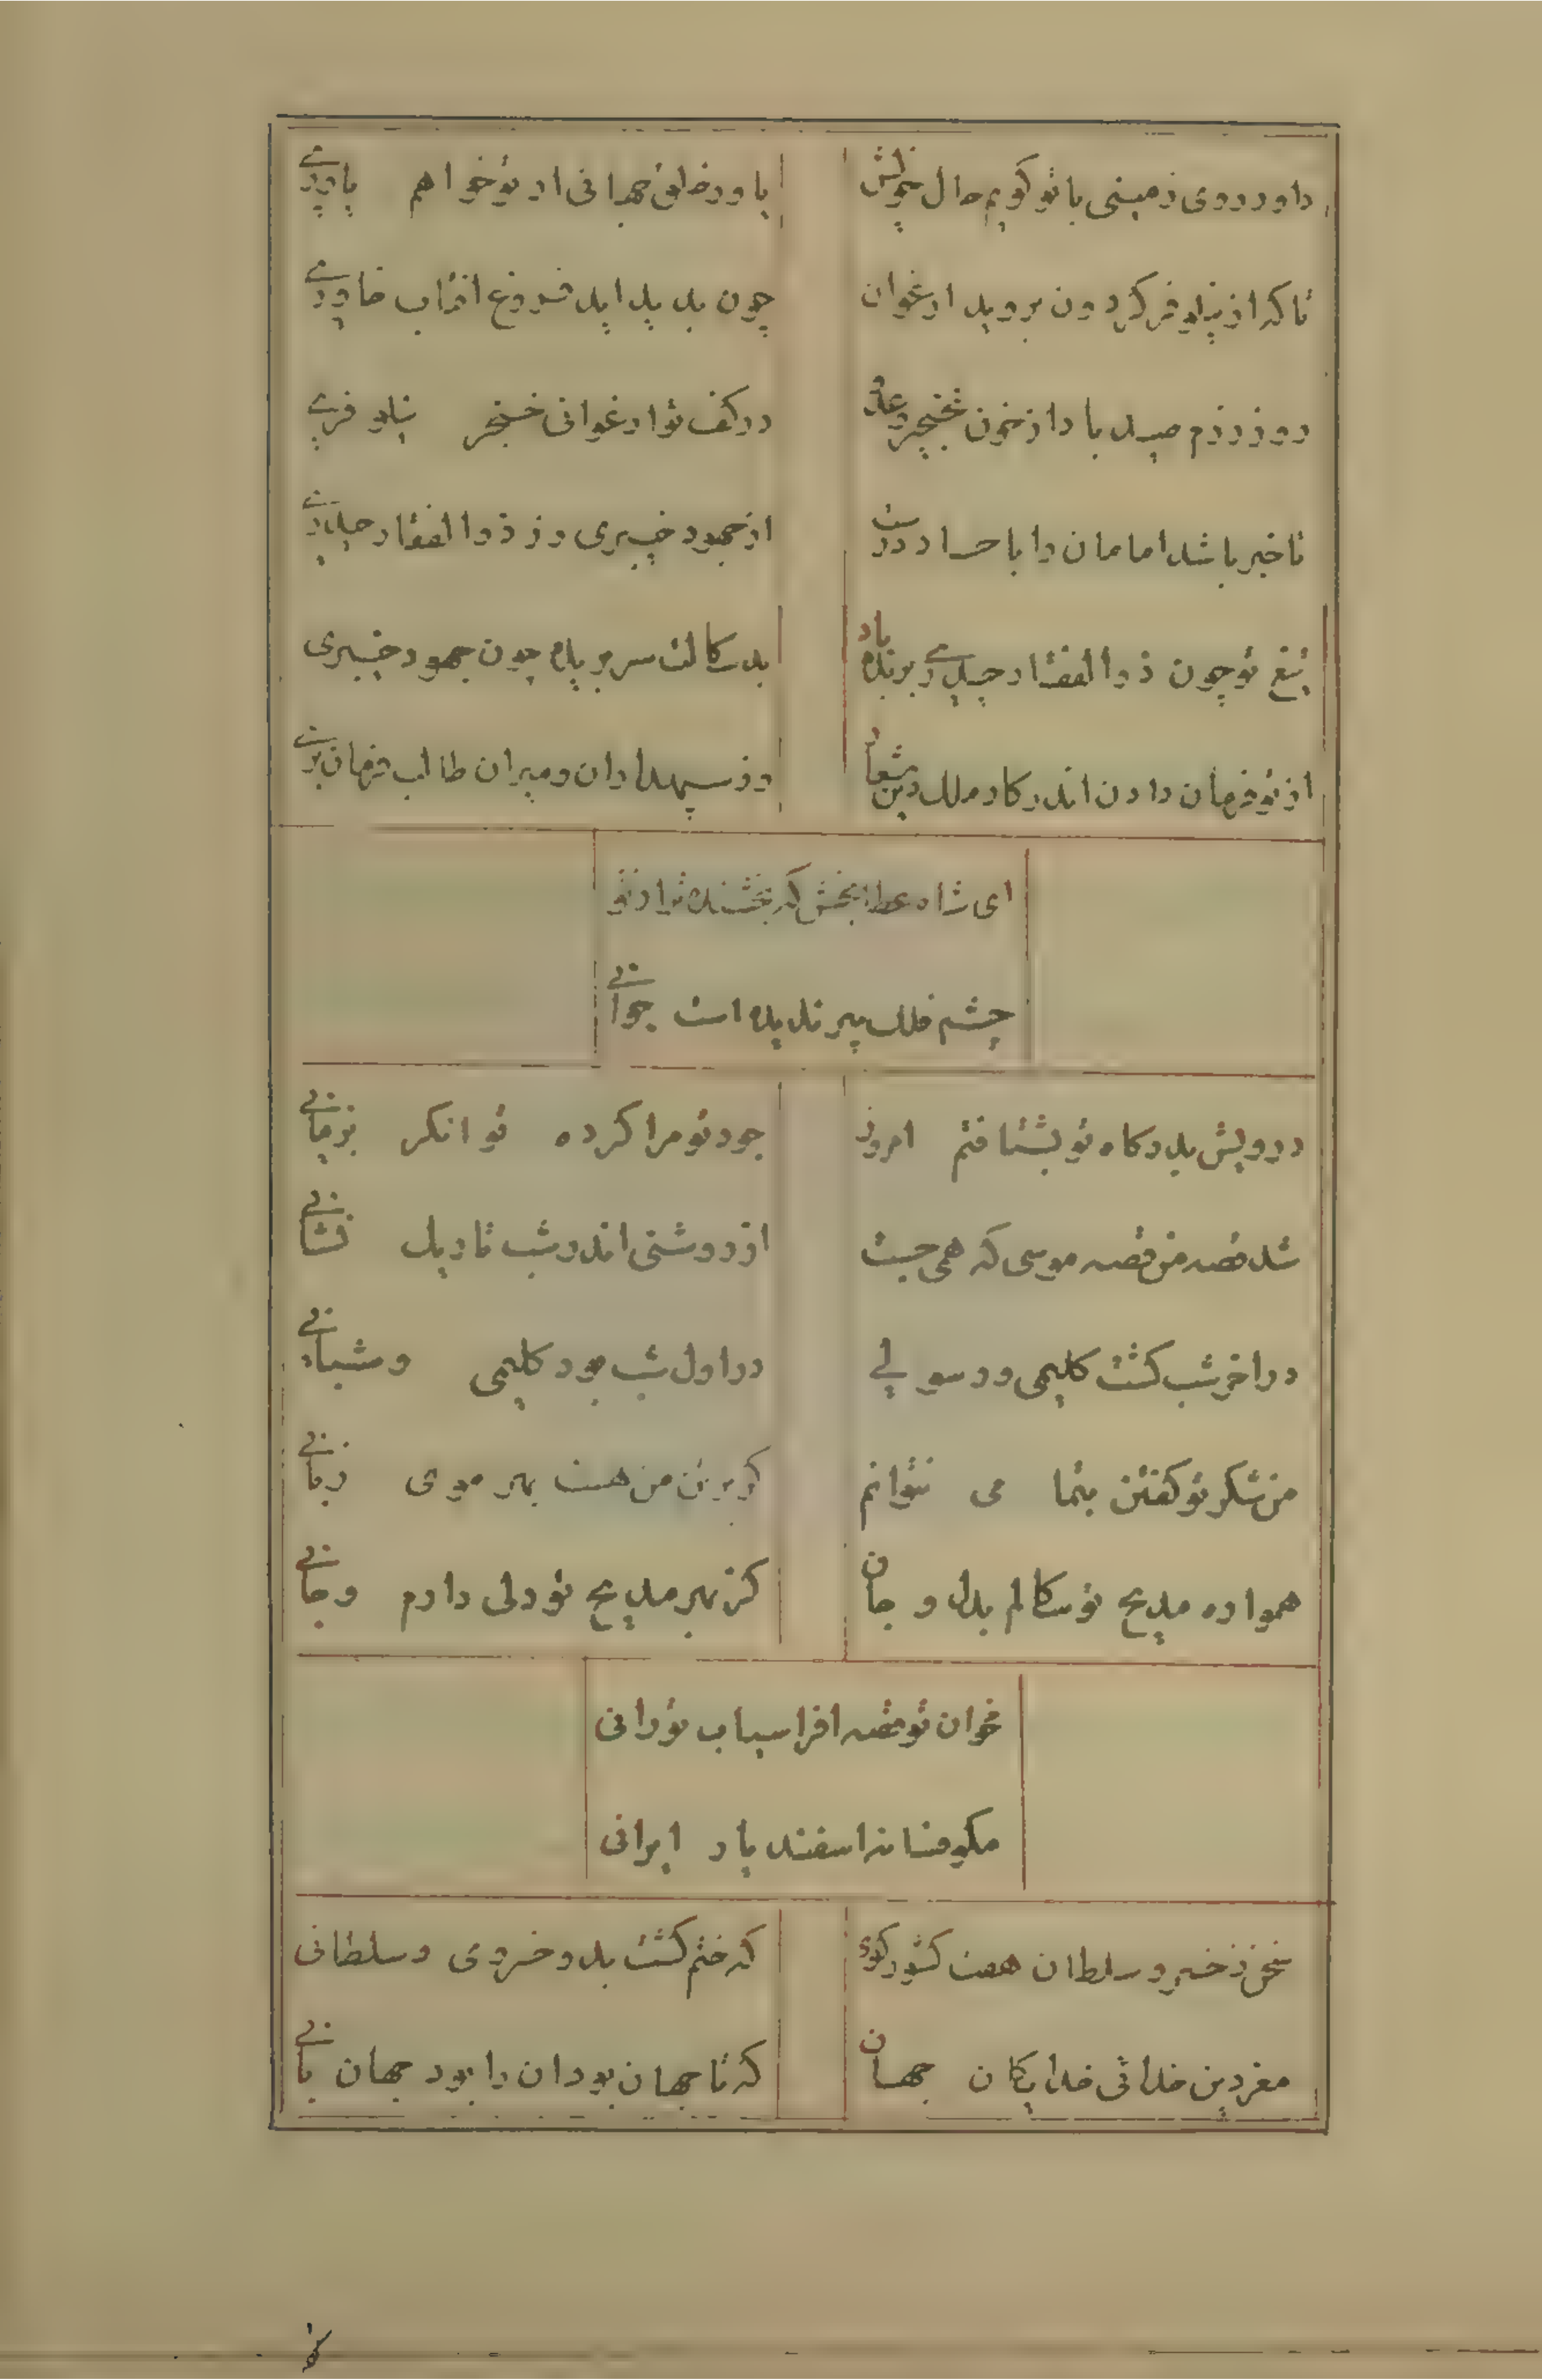 داور روی زمینی با تو کویم حال خویش
یاور خلق جهانی از تو خواهم یاوری
تا که از نیلوفر کردون بروید ارغوان
چون بدید اید فروغ افتاب خاوری
روز رزم صید بادا از خون نخجیر و عدو
در کف تو ارغوانی خنجر نیلوفری
تا خبر باشد امامان را با خبار درست
از جهود خیبری وز ذوالفقار حیدری
تیغ تو چون ذوالفقار حیدری برنده باد
بدسکالت سر بریده چون جهود خیبری
از تو فرمان دادن اندر کار ملک و دین
وز سپهداران و میران طالب فرمان بری
ای شاه عطا بخش که بخشنده تر از تو
چشم فلک پیر ندیده است جوانی
درویش بدرکاه تو بشتافتم امروز
جود تو مرا کرده توانکر بزمانی
شد قصه من قصه موسی که همی جست
از روشنی اندر شب تاریک نشانی
در اخر شب کشت کلیمی و رسولی
در اول شب بود کلیمی و شبانی
من شکر تو کفتن بتما می نتوانم
کر بر تن من هست بهر موی زبانی
همواره مدیح تو سکالم بدل و جان
کز بهر مدیح تو دلی دارم و جانی
مخوان تو قصه افراسیاب تورانی
مکو فسانه اسفندیار ایرانی
سخن ز خسرو سلطان هفت کشور کوی
که ختم کشت بدو خسروی و سلطانی
معز دین خدائی خدایکان جهان
که تا جهان بود ان را بود جهان بانی